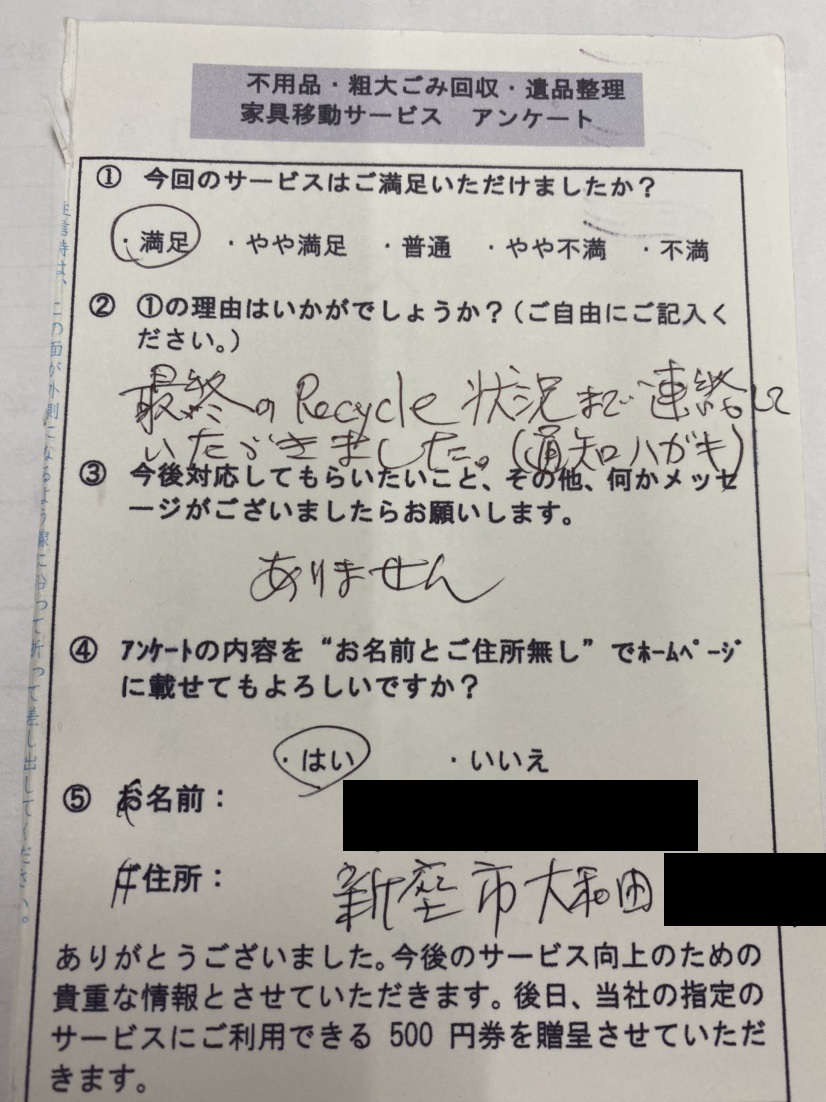 不用品・粗大ごみ回収・遺品整理
家具移動サービス　アンケート
① 今回のサービスはご満足いただけましたか？
・満足 ・やや満足 ・普通 ・やや不満 ・不満
② ①の理由はいかがでしょうか？（ご自由にご記入く
ださい。）
最終のRecycle状況まで連絡して
いただきました。（通知ハガキ）
③ 今後対応してもらいたいこと、その他、何かメッセ
ージがございましたらお願いします。
ありません
④ ｱﾝｹｰﾄの内容を“お名前とご住所無し”でﾎｰﾑﾍﾟｰｼﾞ
に載せてもよろしいですか？
・はい ・いいえ
⑤ お名前：
ご住所： 新座市大和田
ありがとうございました。今後のサービス向上のための
貴重な情報とさせていただきます。後日、当社の指定の
サービスにご利用できる 500 円券を贈呈させていただ
きます。
この面が外側になるよう線に沿って折って差し出してください。